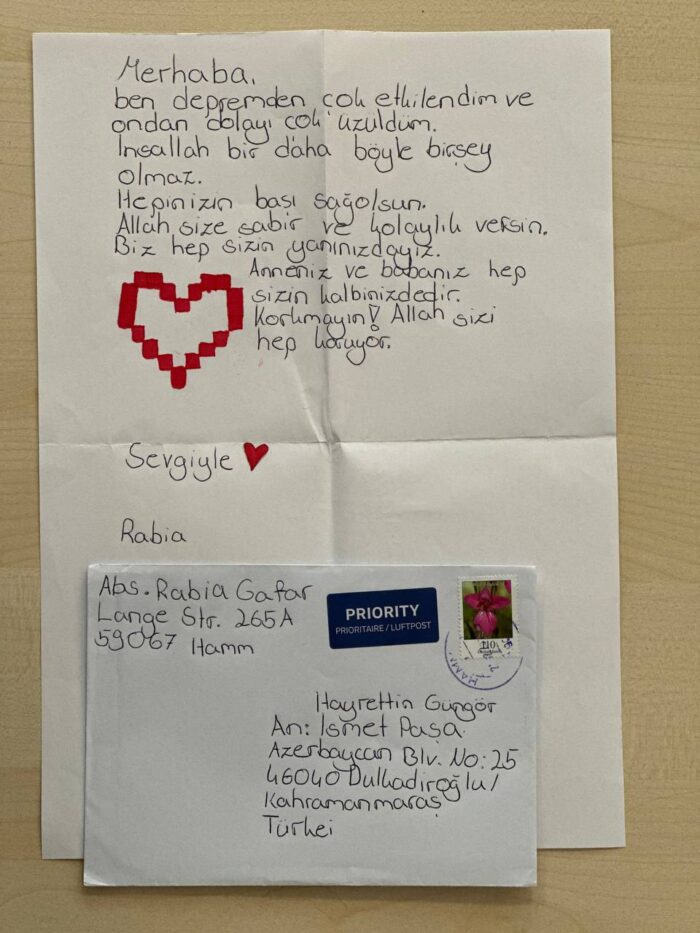 Merhaba,
ben depremden çok etkilendim ve
ondan dolayı çok üzüldüm.
İnsallah bir daha böyle birşey
olmaz.
Hepinizin başı sağolsun.
Allah size sabır ve kolaylık versin.
Biz hep sizin yanınızdayız.
Anneniz ve babanız hep
sizin kalbinizdedir.
Korkmayın! Allah sizi
hep koruyor.
Sevgiyle
Rabia
Abs. Rabia Gafar
Lange Str. 265A
59067 Hamm
PRIORITY
PRIORITAIRE / LUFTPOST
110
Deutschland
Hayrettin Güngör
An: İsmet Paşa
Azerbaycan Blv. No: 25
46040 Dulkadiroğlu/
Kahramanmaraş
Türkei